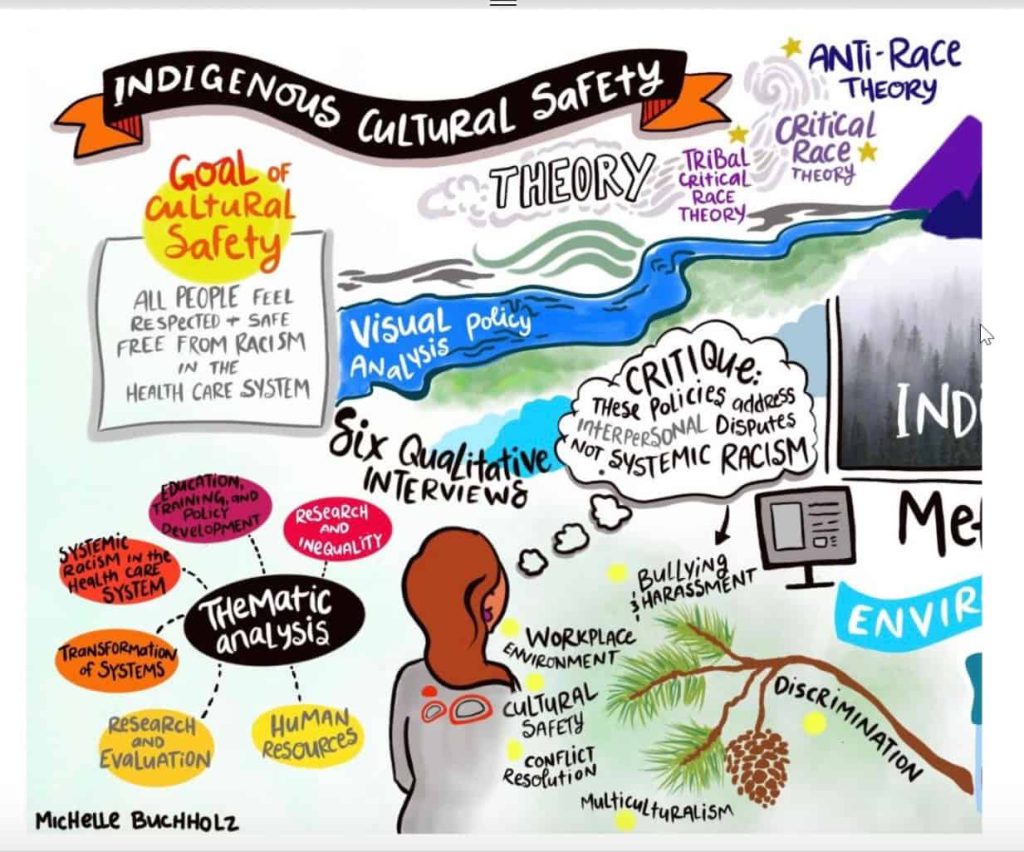 INDIGENOUS CULTURAL SAFETY
ANTI-RACE
THEORY
CRITICAL
RACE
THEORY
THEORY
TRIBAL
CRITICAL
RACE
THEORY
GOAL OF
CULTURAL
SAFETY
ALL PEOPLE FEEL
RESPECTED + SAFE
FREE FROM RACISM
IN THE
HEALTH CARE SYSTEM
VISUAL POLICY
ANALYSIS
CRITIQUE:
THESE POLICIES ADDRESS
INTERPERSONAL DISPUTES
NOT SYSTEMIC RACISM
IND
SIX QUALITATIVE
INTERVIEWS
Me
ENVIR
EDUCATION,
TRAINING, AND
POLICY
DEVELOPMENT
RESEARCH
AND
INEQUALITY
SYSTEMIC
RACISM IN THE
HEALTH CARE
SYSTEM
THEMATIC
ANALYSIS
TRANSFORMATION
OF SYSTEMS
RESEARCH
AND
EVALUATION
HUMAN
RESOURCES
BULLYING
& HARASSMENT
WORKPLACE
ENVIRONMENT
CULTURAL
SAFETY
CONFLICT
RESOLUTION
MULTICULTURALISM
DISCRIMINATION
MICHELLE BUCHHOLZ